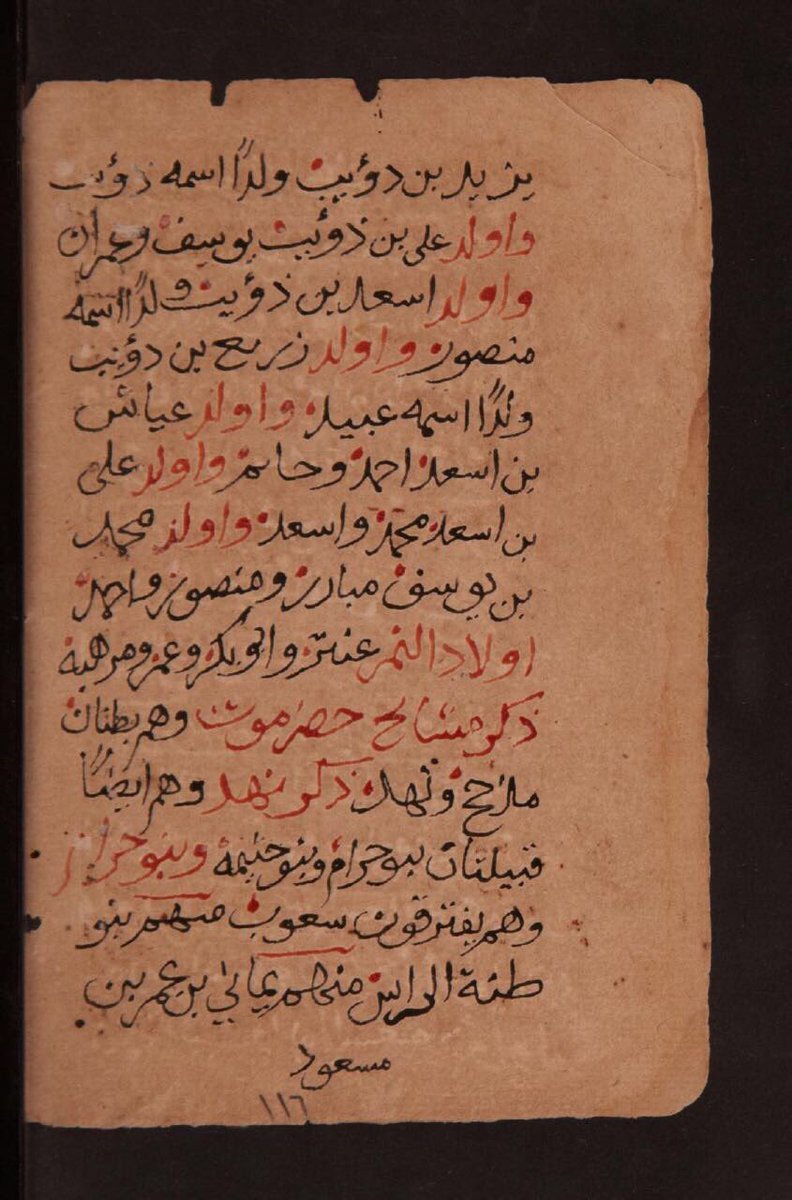 يزيد بن دؤيب ولدًا اسمه ذؤيب
واولد على بن ذؤيب يوسف وعمران
واولد اسعد بن ذؤيب ولدًا اسمه
منصور واولد زريع بن دؤيب
ولدًا اسمه عبيد واولد عياش
بن اسعد احمد وحاتم واولد على
بن اسعد محمد واسعد واولد محمد
بن يوسف مبارك ومنصور واحمد
اولاد النمر عنتر وابوبكر وعمر ومرهبه
ذكر مشايخ حضرموت وهم بطنان
مذحج ونهد ذكر نهد وهم ايضًا
قبيلتان بنو حرام وبنو خثيمه وبنو حرام
وهم يفترقون شعوب منهم بنو
ظنة الراس منهم يماني بن عمر بن
مسعود
١١٦